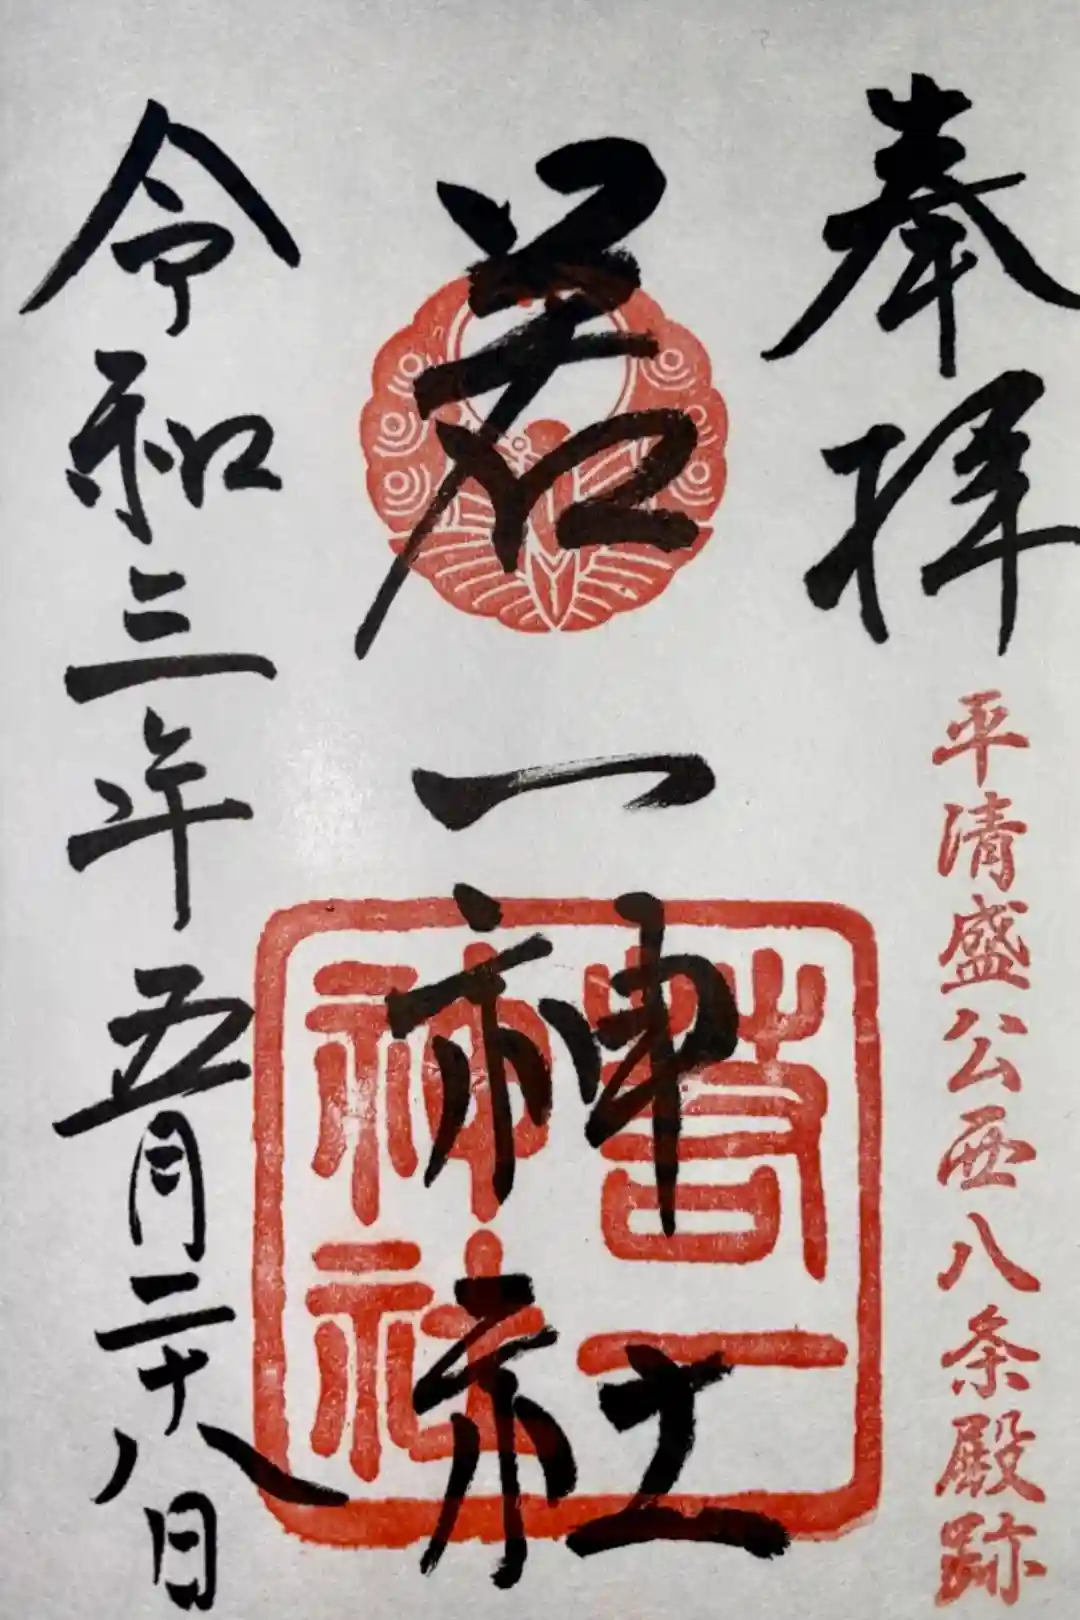 奉拝
平清盛公西八条殿跡
若一神社
若一
神社
令和三年五月二十八日